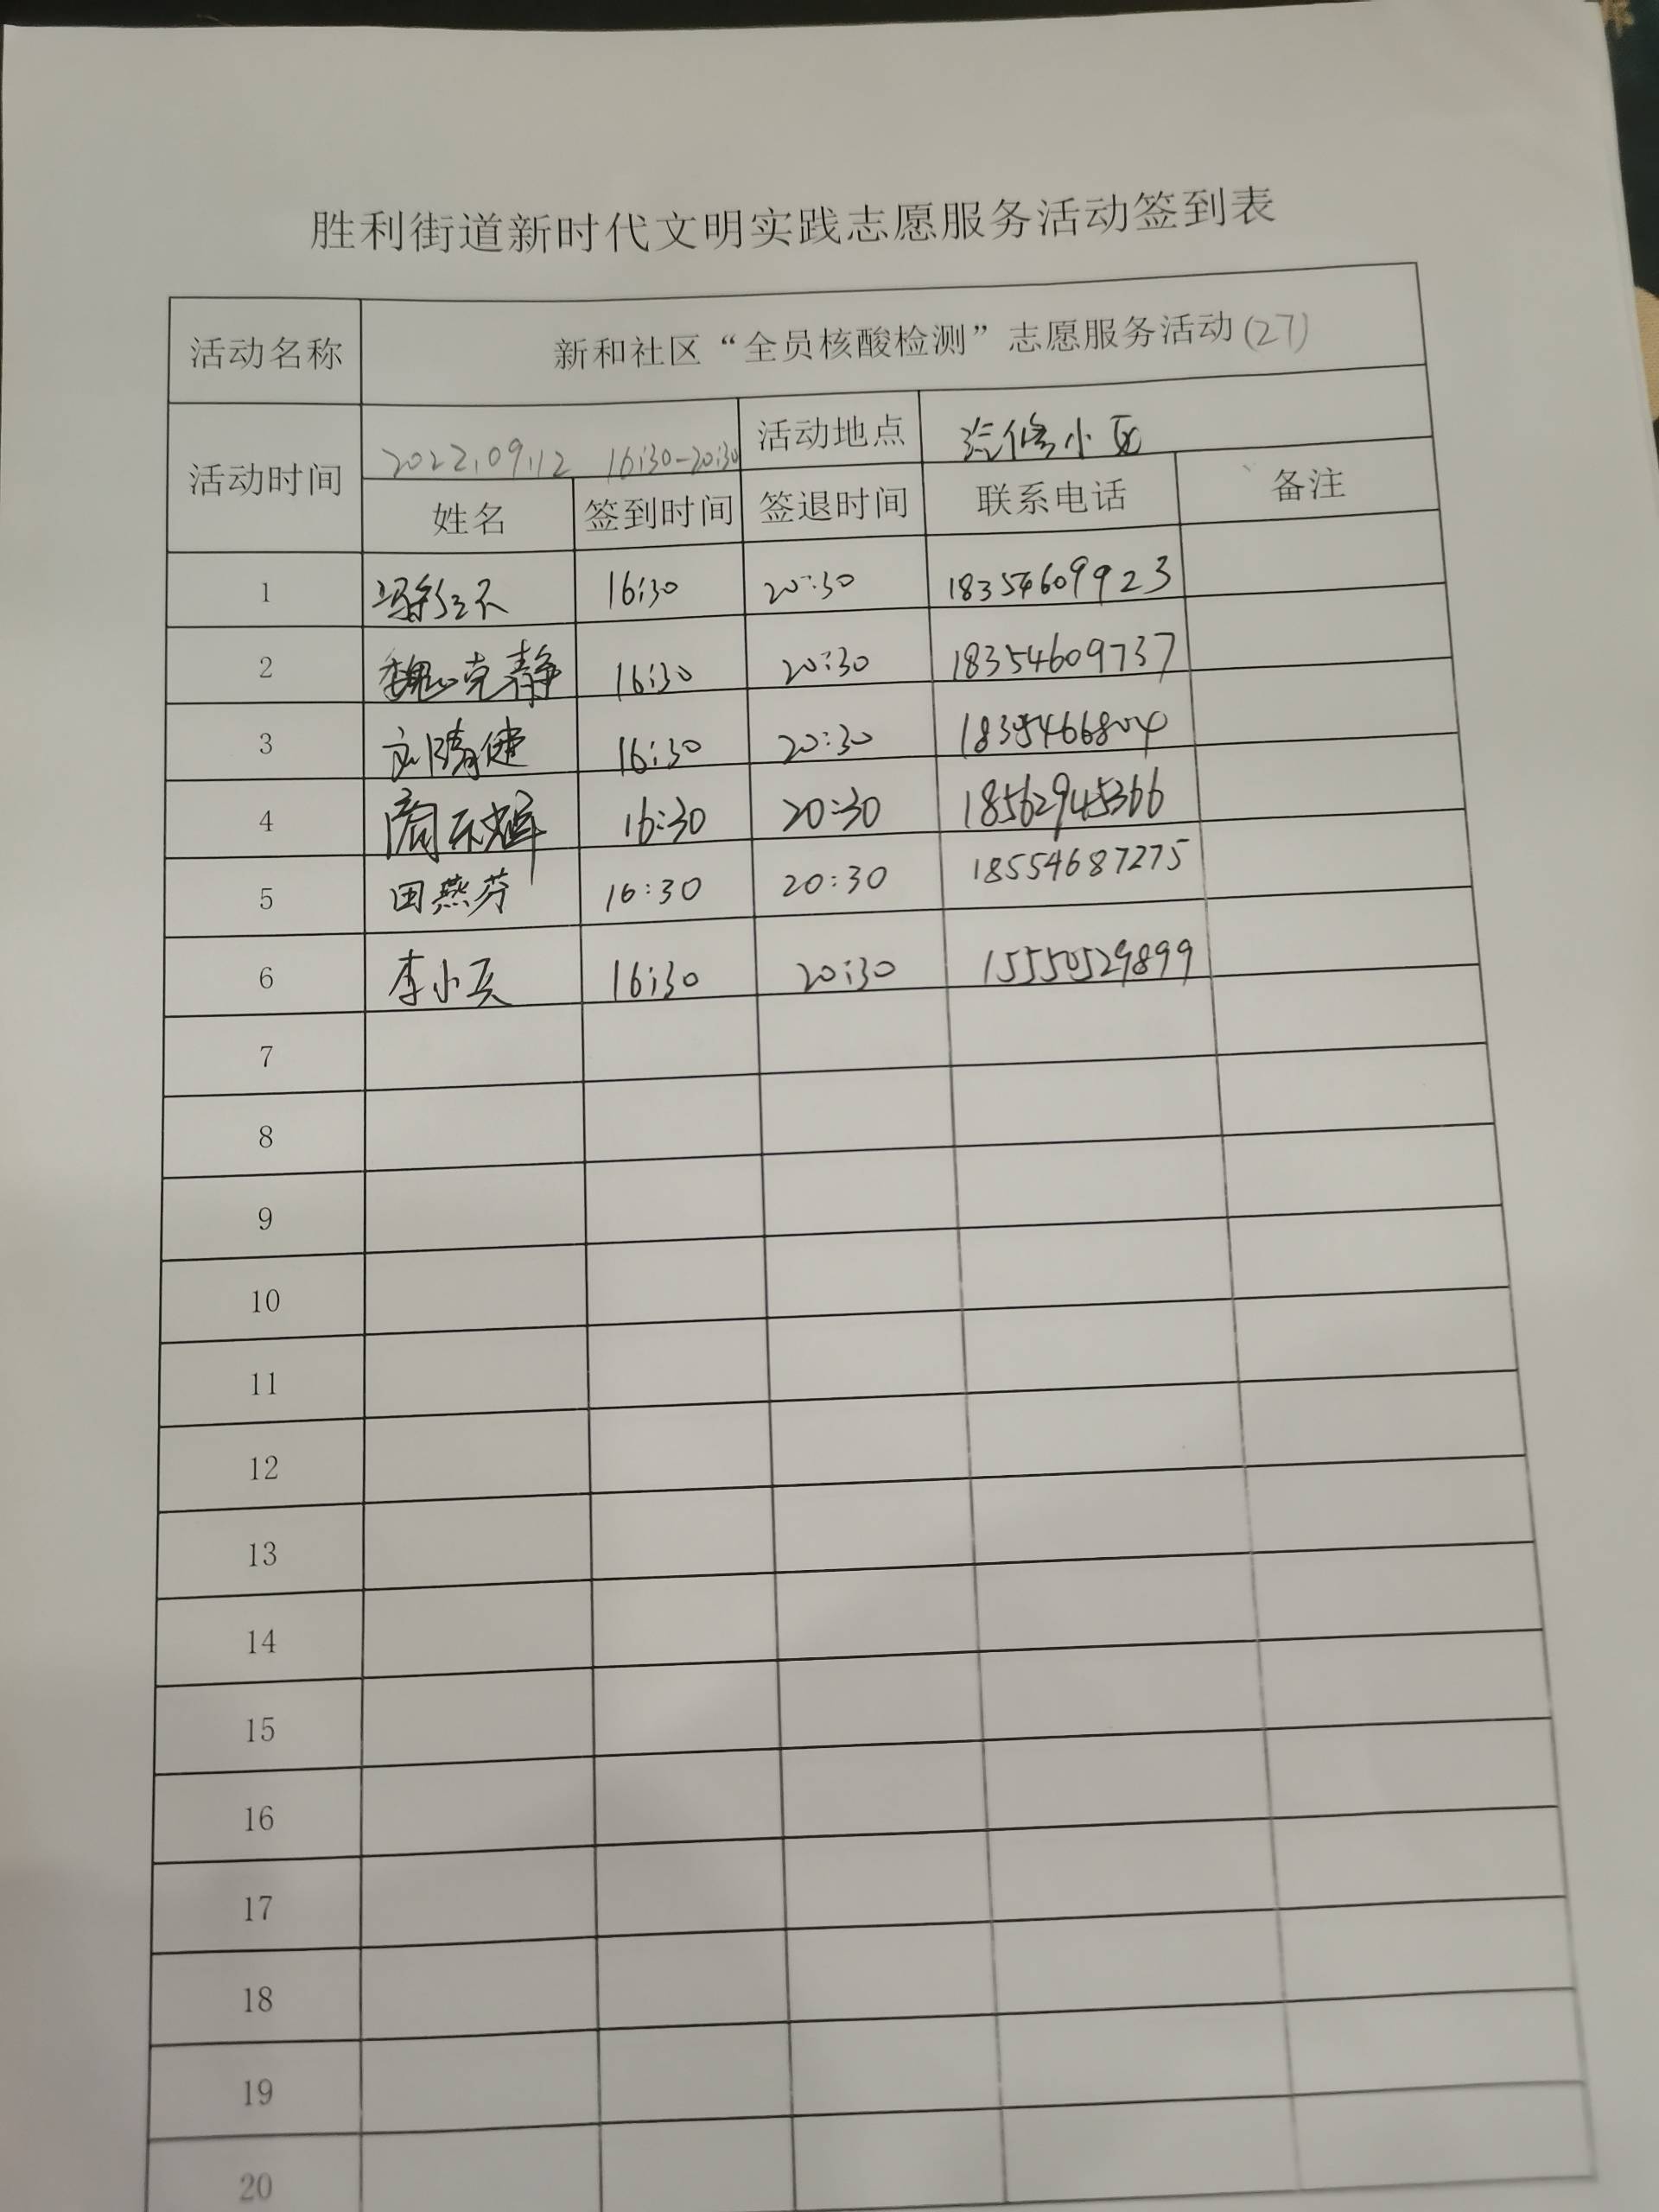 胜利街道新时代文明实践志愿服务活动签到表
活动名称 新和社区“全员核酸检测”志愿服务活动(27)
活动时间 2022.09.12 16:30-20:30 活动地点 汽修小区
姓名 签到时间 签退时间 联系电话 备注
1 16:30 20:30 18354609923
2 魏克静 16:30 20:30 18354609737
3 16:30 20:30
4 16:30 20:30 18562945366
5 田燕芬 16:30 20:30 18554687275
6 李小兵 16:30 20:30 15550529899
7
8
9
10
11
12
13
14
15
16
17
18
19
20